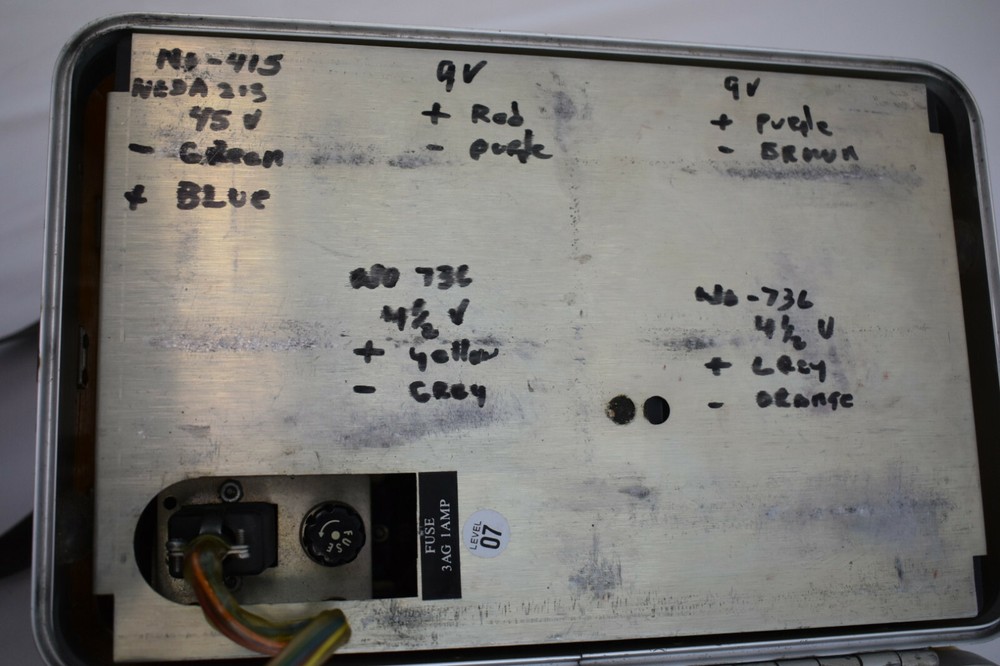 No-415
NEDA 213
45 V
- Green
+ BLUE
9V
+ Red
- purple
9V
+ purple
- BROWN
NO 736
4 1/2 V
+ yellow
- GREY
No-736
4 1/2 V
+ GREY
- ORANGE
FUSE
FUSE
3AG 1AMP
LEVEL
07